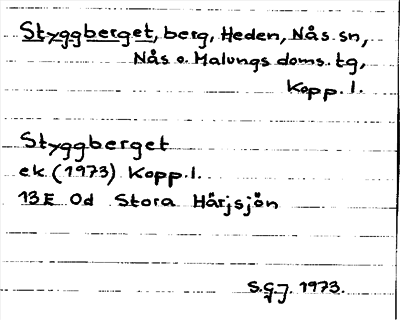 Styggberget, berg, Heden, Nås sn,
Nås o. Malungs doms. tg,
Kopp. l.
Styggberget
ek (1973) Kopp. l.
13E 0d Stora Härjsjön
S.G.J. 1973.